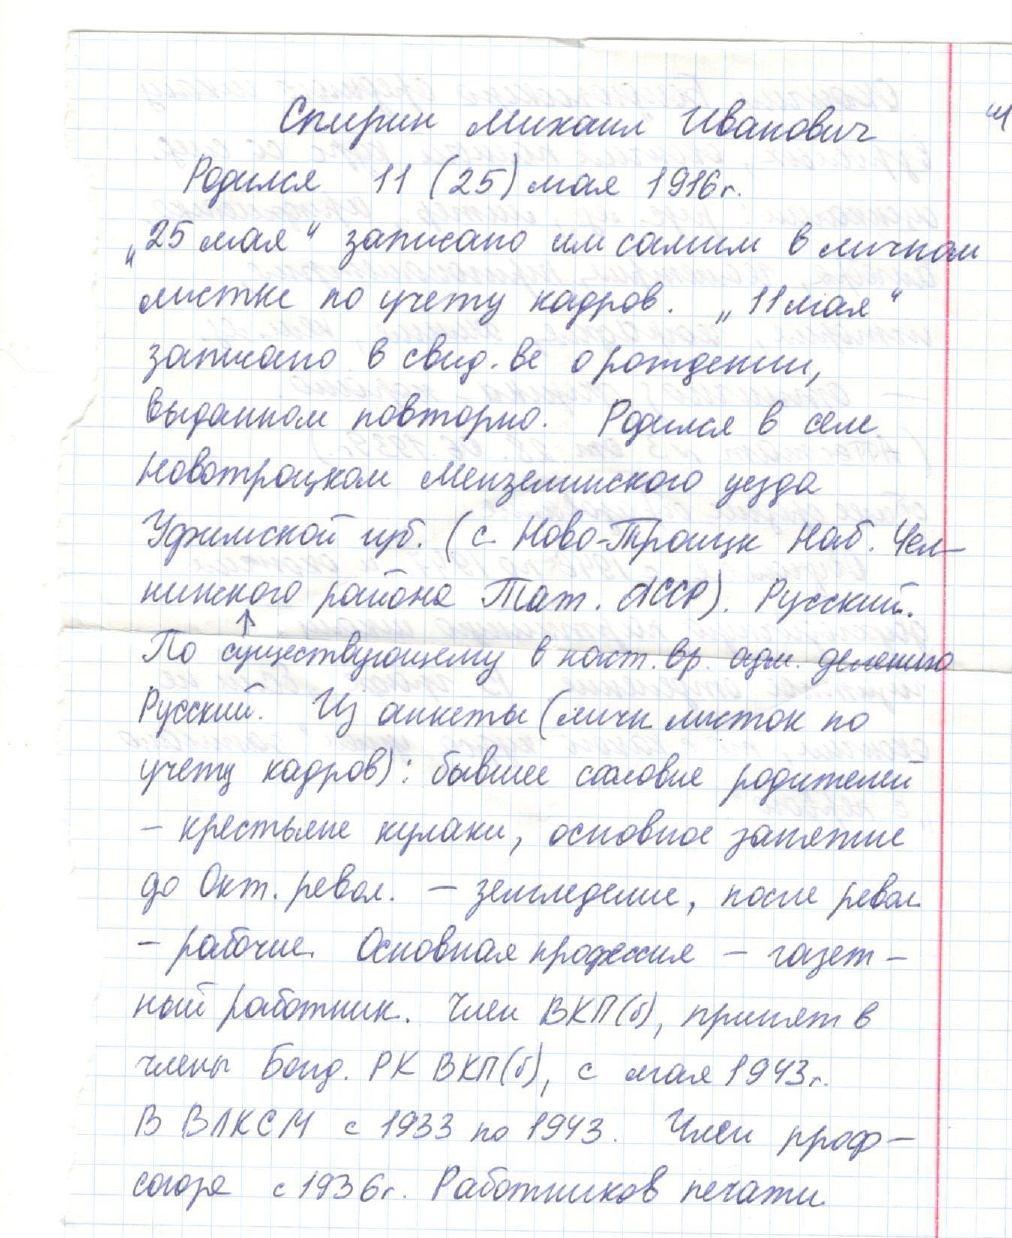 Спирин Михаил Иванович
Родился 11 (25) мая 1916 г.
„25 мая“ записано им самим в личном
листке по учету кадров. „11 мая“
записано в свид. ве о рождении,
выданном повторно. Родился в селе
Новотроицком Мензелинского уезда
Уфимской губ. (с. Ново-Троицк Наб. Чел-
нинского района Тат. АССР). Русский.
По существующему в наст. вр. адм. делению
Русский. Из анкеты (личн листок по
учету кадров): бывшее сословие родителей
– крестьяне кулаки, основное занятие
до Окт. револ. – земледелие, после револ.
– рабочие. Основная профессия – газет-
ный работник. Член ВКП(б), принят в
члены Бонд. РК ВКП(б), с мая 1943 г.
В ВЛКСМ с 1933 по 1943. Член проф-
союза с 1936 г. Работников печати